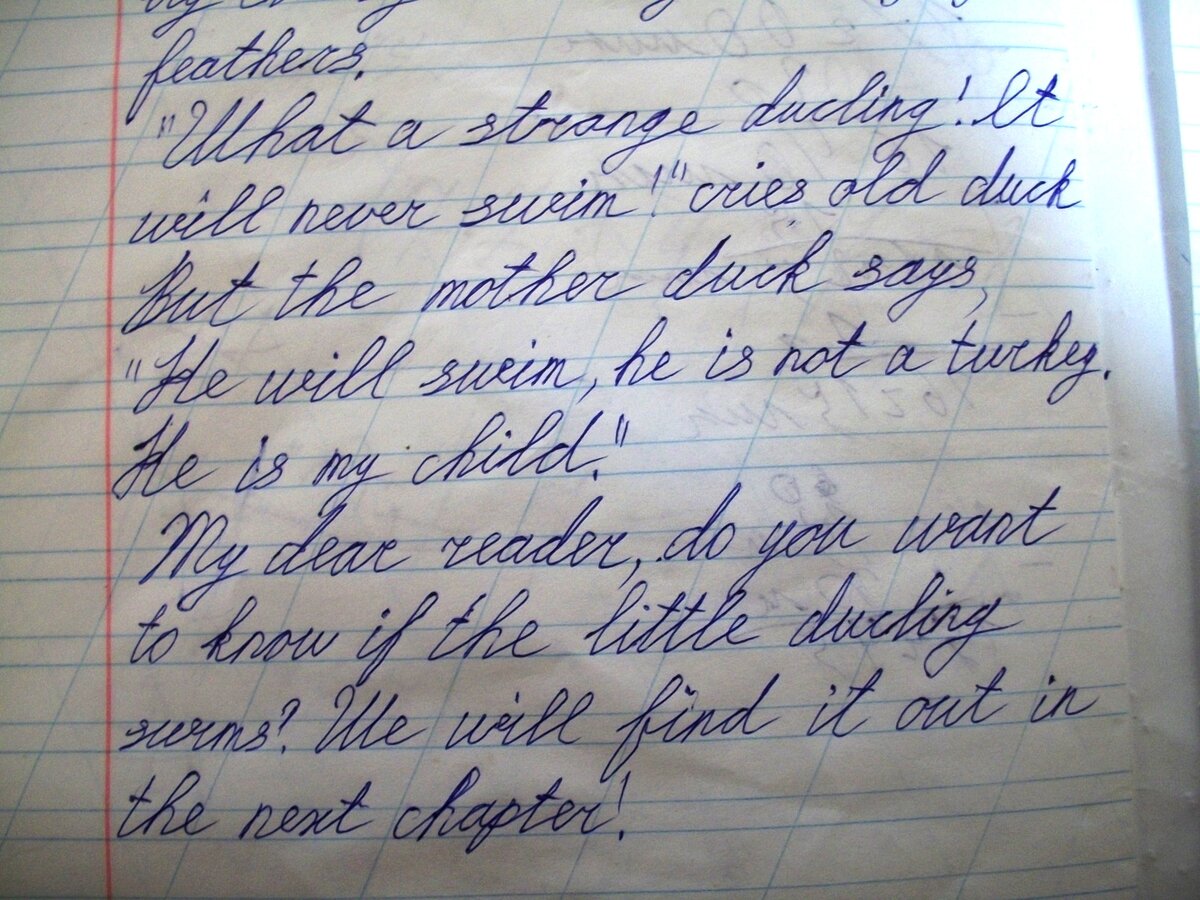 feathers.
"What a strange ducling! It
will never swim!" cries old duck
But the mother duck says,
"He will swim, he is not a turkey.
He is my child."
My dear reader, do you want
to know if the little ducling
swims? We will find it out in
the next chapter!